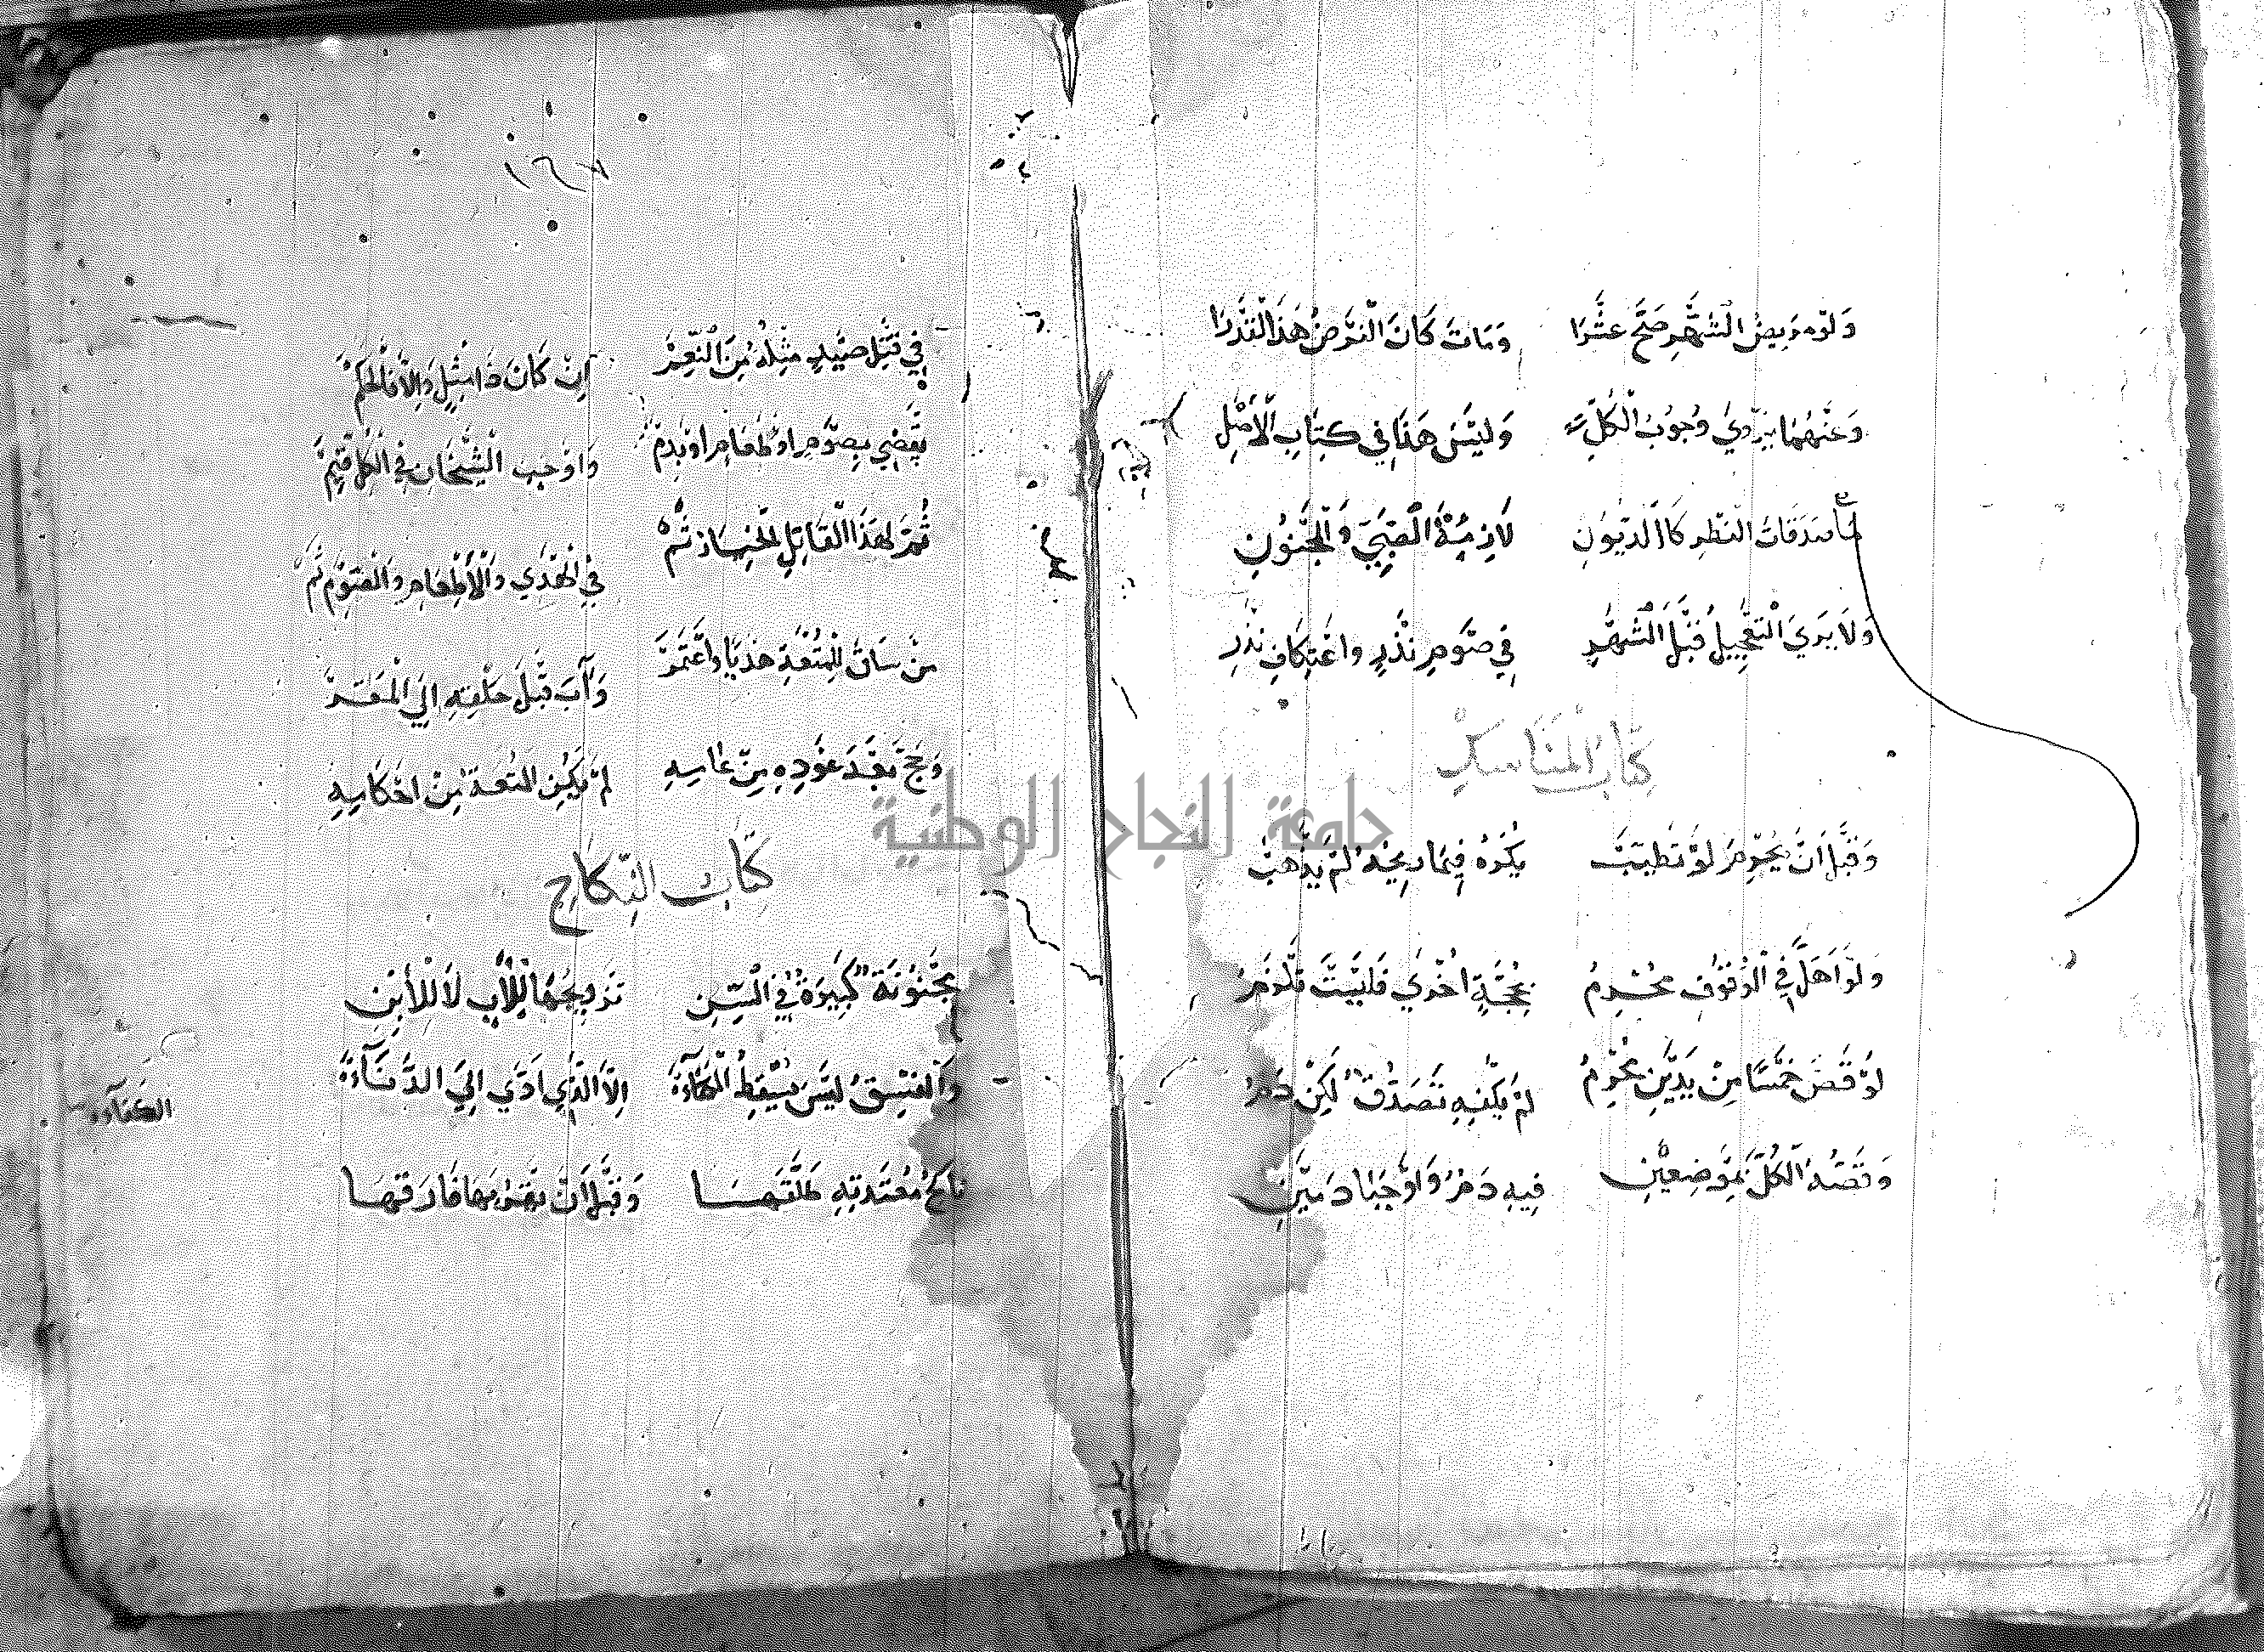 وَلَوْ مَرِيضُ الشَّهْرِ صَحَّ عَشْرَا وَمَاتَ كَانَ الْفَرْضُ هَذَا الْقَدْرَا
وَعَنْهُمَا يُرْوَى وُجُوبُ الْكُلِّ وَلَيْسَ هَذَا فِي كِتَابِ الْأَصْلِ
صَدَقَاتُ الْفِطْرِ كَالدُّيُونِ لَازِمَةُ الصَّبِيِّ وَالْجُنُونِ
وَلَا يَرَى التَّعْجِيلَ قَبْلَ الشَّهْرِ فِي صَوْمِ نَذْرٍ وَاعْتِكَافِ نَذْرِ
كِتَابُ الْمَنَاسِكِ
وَقَبْلَ أَنْ يُحْرِمَ لَوْ تَطَيَّبَ يُكْرَهُ فِيمَا رِيحُهُ لَمْ يَذْهَبْ
وَلَوْ أَهَلَّ فِي الْوُقُوفِ مُحْرِمُ بِحَجَّةٍ أُخْرَى فَلَيْسَتْ تَلْزَمُ
لَوْ قَصَّ خَمْسًا مِنْ يَدَيْنِ مُحْرِمُ لَمْ يَكْفِهِ تَصَدُّقٌ لَكِنْ دَمُ
وَقَصُّهُ الْكُلَّ بِمَوْضِعَيْنِ فِيهِ دَمٌ وَأَوْجَبَا دَمَيْنِ
١٦٧
فِي قَتْلِ صَيْدٍ مِثْلُهُ مِنَ النَّعَمْ إِنْ كَانَ ذَا مِثْلٍ وَإِلَّا فَالْحَكَمْ
يَقْضِي بِصَوْمٍ أَوْ طَعَامٍ أَوْ بِدَمْ وَأَوْجَبَ الشَّيْخَانِ فِي الْكُلِّ قِيَمْ
ثُمَّ لِهَذَا الْقَاتِلِ الْخِيَارُ ثَمْ فِي الْهَدْيِ وَالْإِطْعَامِ وَالصَّوْمِ
مَنْ سَاقَ لِلْمُتْعَةِ هَدْيًا وَاعْتَمَرْ وَآبَ قَبْلَ حَلْقِهِ إِلَى الْمَقَرْ
وَحَجَّ بَعْدَ عَوْدِهِ مِنْ عَامِهِ لَمْ يَكُنِ التَّمَتُّعُ مِنْ أَحْكَامِهِ
كِتَابُ النِّكَاحِ
مَجْنُونَةٌ كَبِيرَةٌ فِي السِّنِ تَزْوِيجُهَا لِلْأَبِ لَا لِلْابْنِ
وَالْفِسْقُ لَيْسَ يُسْقِطُ الْكَفَاءَهْ إِلَّا الَّذِي أَدَّى إِلَى الدَّنَاءَهْ
الكفاءه
نَاكِحُ مُعْتَدَّتِهِ طَلَّقَهَا وَقَبْلَ أَنْ يَقْرَبَهَا فَارَقَهَا
جامعة النجاح الوطنية